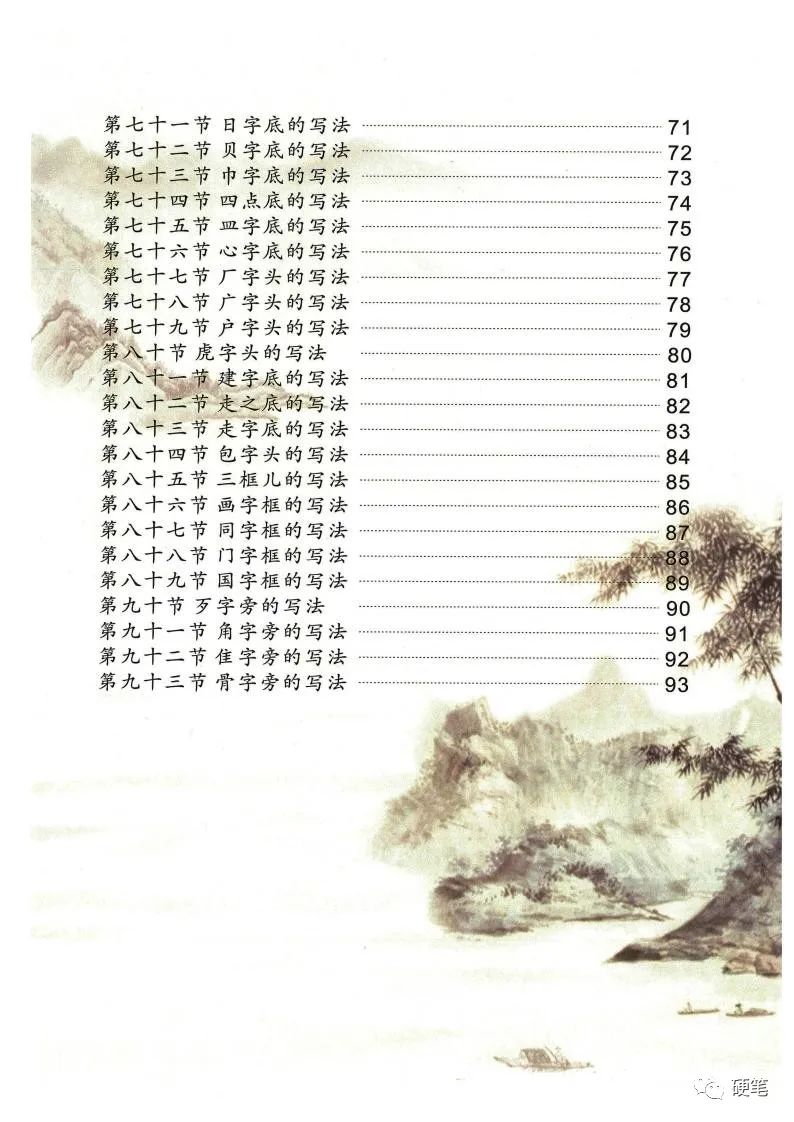 第七十一节 日字底的写法 71
第七十二节 贝字底的写法 72
第七十三节 巾字底的写法 73
第七十四节 四点底的写法 74
第七十五节 皿字底的写法 75
第七十六节 心字底的写法 76
第七十七节 厂字头的写法 77
第七十八节 广字头的写法 78
第七十九节 户字头的写法 79
第八十节 虎字头的写法 80
第八十一节 建字底的写法 81
第八十二节 走之底的写法 82
第八十三节 走字底的写法 83
第八十四节 包字头的写法 84
第八十五节 三框儿的写法 85
第八十六节 画字框的写法 86
第八十七节 同字框的写法 87
第八十八节 门字框的写法 88
第八十九节 国字框的写法 89
第九十节 歹字旁的写法 90
第九十一节 角字旁的写法 91
第九十二节 隹字旁的写法 92
第九十三节 骨字旁的写法 93
硬笔